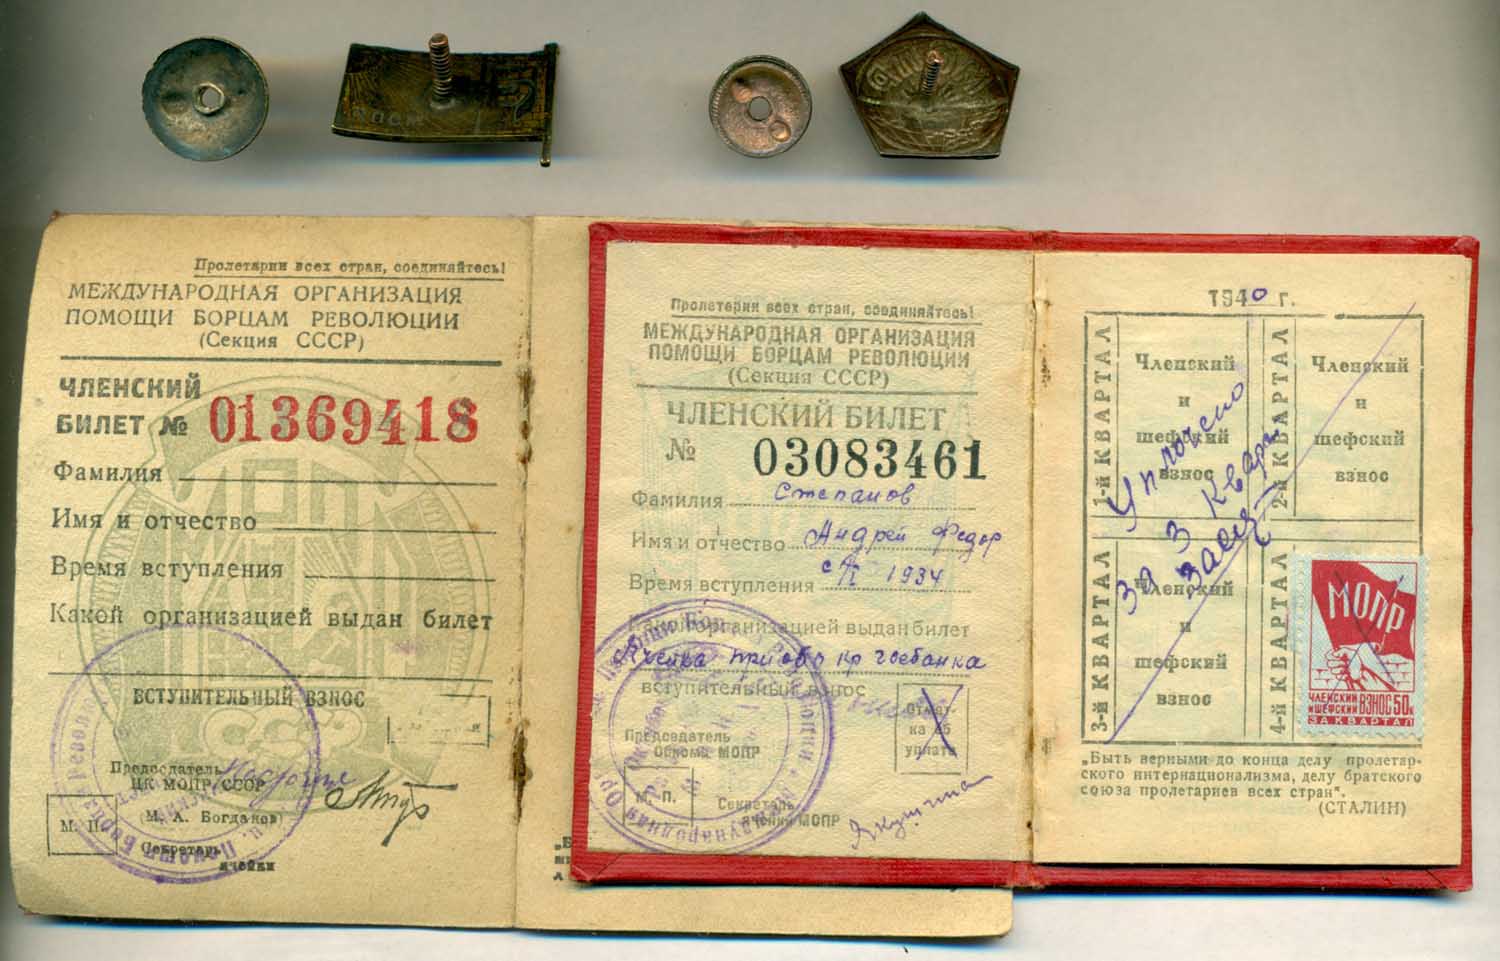 Пролетарии всех стран, соединяйтесь!
МЕЖДУНАРОДНАЯ ОРГАНИЗАЦИЯ
ПОМОЩИ БОРЦАМ РЕВОЛЮЦИИ
(Секция СССР)
ЧЛЕНСКИЙ
БИЛЕТ № 01369418
Фамилия
Имя и отчество
Время вступления
Какой организацией выдан билет
ВСТУПИТЕЛЬНЫЙ ВЗНОС
Председатель
ЦК МОПР СССР
(М. А. Богданов)
М. П.
Секретарь
ячейки
Пролетарии всех стран, соединяйтесь!
МЕЖДУНАРОДНАЯ ОРГАНИЗАЦИЯ
ПОМОЩИ БОРЦАМ РЕВОЛЮЦИИ
(Секция СССР)
ЧЛЕНСКИЙ БИЛЕТ
№ 03083461
Фамилия Степанов
Имя и отчество Андрей Федор
Время вступления с 1934
Какой организацией выдан билет
Ячейка при обл кр госбанка
вступительный взнос
Отмет-
ка об
уплате
Председатель
Окома МОПР
М. П.
Секретарь
ячейки МОПР
1940 г.
1-й КВАРТАЛ
Членский
и
шефский
взнос
2-й КВАРТАЛ
Членский
и
шефский
взнос
Уплочено
за 3 кварт
3-й КВАРТАЛ
Членский
и
шефский
взнос
4-й КВАРТАЛ
МОПР
ЧЛЕНСКИЙ
И ШЕФСКИЙ ВЗНОС 50к
ЗА КВАРТАЛ
„Быть верными до конца делу пролетар-
ского интернационализма, делу братского
союза пролетариев всех стран".
(СТАЛИН)